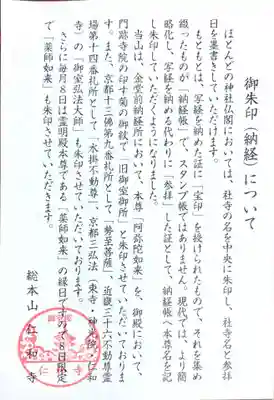 御朱印（納経）について
ほとんどの神社仏閣においては、社寺の名を中央に朱印し、社寺名と参拝
日を墨書きしていただけます。
もともとは、写経を納めた証に「宝印」を授けられたもので、それを集め
綴ったものが「納経帳」で、スタンプ帳ではありません。現代では、より簡
略化し、写経を納める代わりに「参拝」した証として、納経帳へ本尊名を記
し朱印していただくようになりました。
当山は、金堂前納経所において、本尊「阿弥陀如来」を、御殿において、
門跡寺院の印す菊の御紋で「旧御室御所」と朱印させていただいておりま
す。また、京都十三佛第九番札所として「勢至菩薩」近畿三十六不動尊霊
場第十四番札所として「水掛不動尊」、京都三弘法（東寺・神光院・仁和
寺）の「御室弘法大師」も朱印させていただいております。
さらに毎月8日は霊明殿本尊である「薬師如来」の縁日ですので8日限定
で「薬師如来」も朱印させていただきます。
総本山 仁和寺